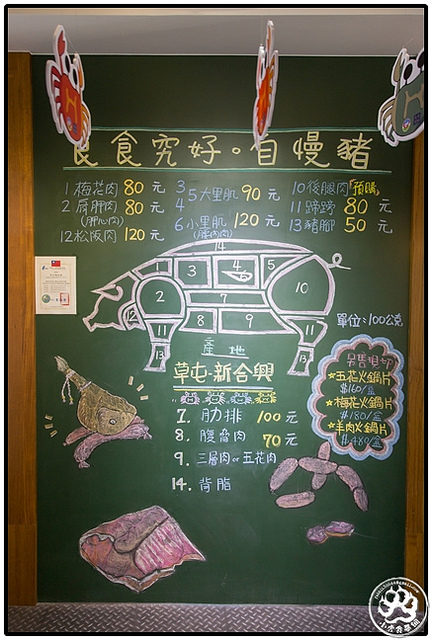 良食究好。自慢豬
1 梅花肉 80 元
2 肩胛肉 80 元
(胛心肉)
12 松阪肉 120 元
3
5 大里肌 90 元
4
6 小里肌 120 元
(腰內肉)
10 後腿肉 預購
11 蹄膀 80 元
13 豬腳 50 元
14
1 3 4 5
2 7 10
12 8 9
11 11
13 13
單位:100公克
產地
草屯·新合興
7. 肋排 100 元
8. 腹脅肉 70 元
9. 三層肉 or 五花肉
14. 背脂
另售現切
☆五花火鍋片
$160/盒
☆梅花火鍋片
$180/盒
☆羊肉火鍋片
$480/盒
小虎食夢網